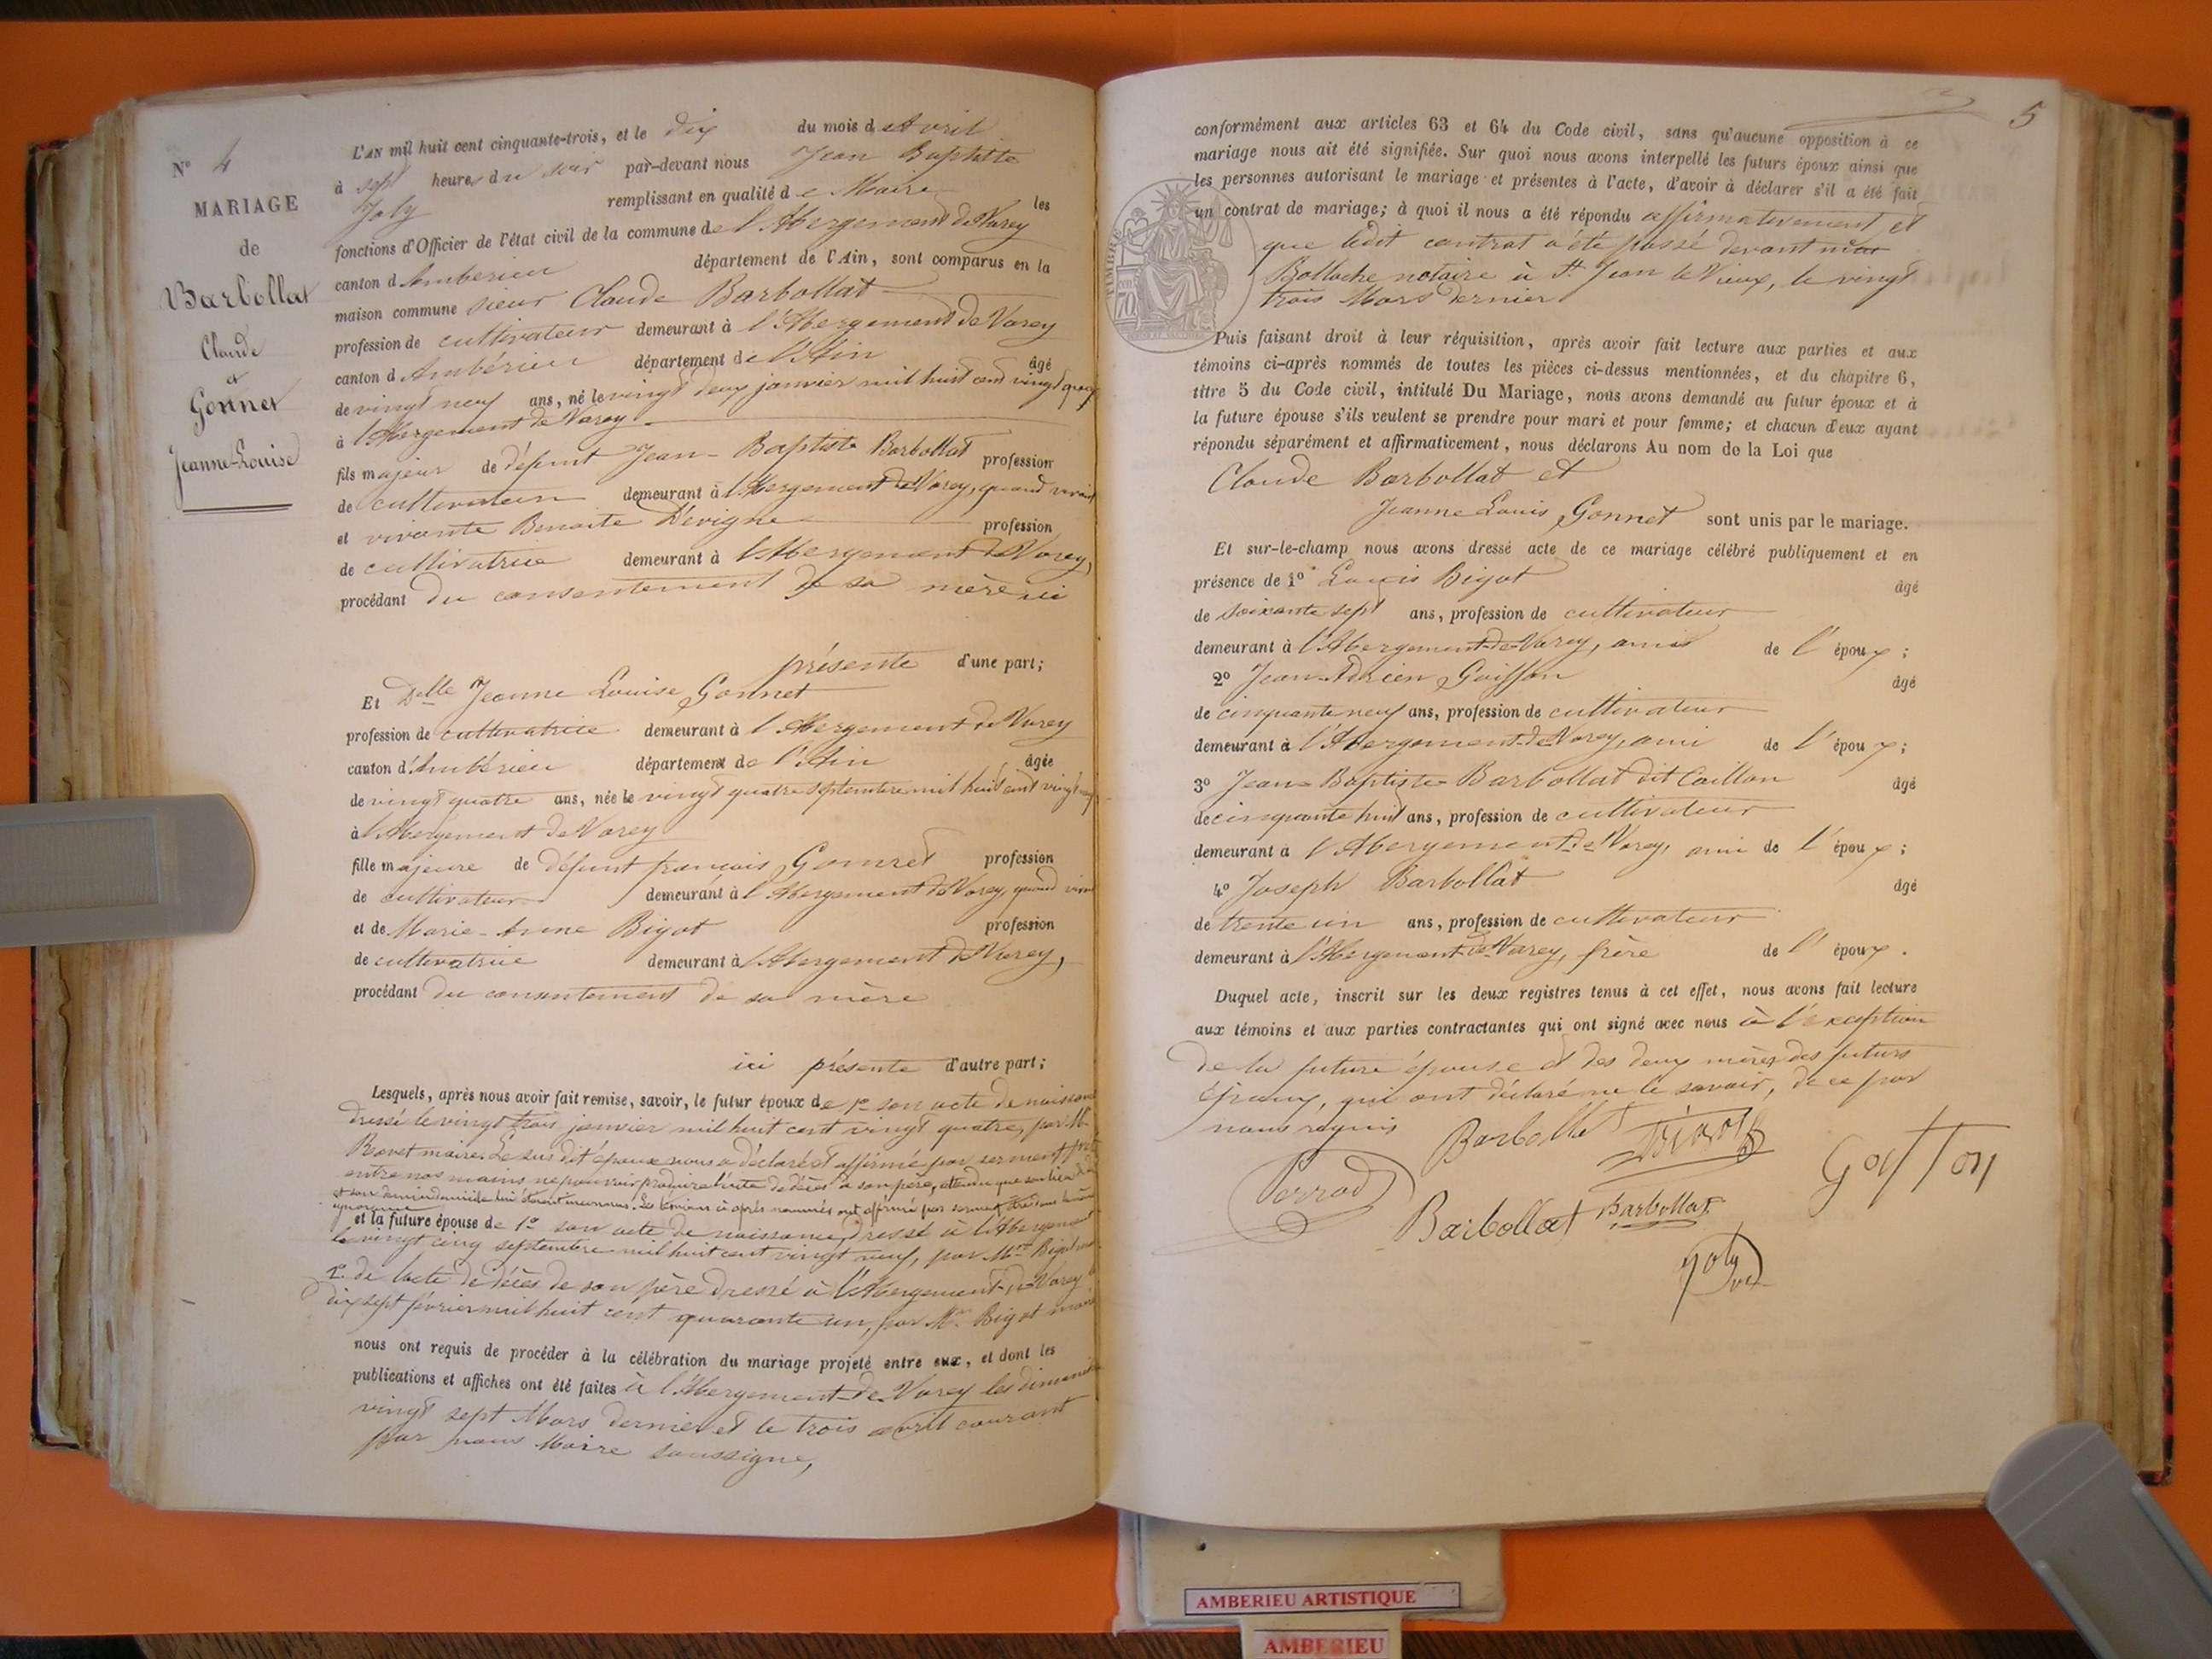 N° 4
MARIAGE
de
Barbollat
Claude
et
Gonnet
Jeanne-Louise
L'AN mil huit cent cinquante-trois, et le dix du mois d'Avril
à sept heures du soir par-devant nous Jean Baptiste
Joly remplissant en qualité de Maire les
fonctions d'Officier de l'état civil de la commune de l'Abergement de Varey
canton d'Ambérieu département de l'Ain, sont comparus en la
maison commune sieur Claude Barbollat
profession de cultivateur demeurant à l'Abergement de Varey
canton d'Ambérieu département de l'Ain âgé
de vingt neuf ans, né le vingt deux janvier mil huit cent vingt quatre
à l'Abergement de Varey
fils majeur de défunt Jean-Baptiste Barbollat profession
de cultivateur demeurant à l'Abergement de Varey, quand vivait
et vivante Benoite Dévigne profession
de cultivatrice demeurant à l'Abergement de Varey,
procédant du consentement de sa mère ici
présente d'une part;
Et Delle Jeanne Louise Gonnet
profession de cultivatrice demeurant à l'Abergement de Varey
canton d'Ambérieu département de l'Ain âgée
de vingt quatre ans, née le vingt quatre septembre mil huit cent vingt
à l'Abergement de Varey
fille majeure de défunt françois Gonnet profession
de cultivateur demeurant à l'Abergement de Varey, quand vivait
et de Marie-Anne Bigot profession
de cultivatrice demeurant à l'Abergement de Varey,
procédant du consentement de sa mère
ici présente d'autre part;
Lesquels, après nous avoir fait remise, savoir, le futur époux de 1° son acte de naissance
dressé le vingt trois janvier mil huit cent vingt quatre, par Mr
maire. Le sus dit époux nous a déclaré et affirmé par serment
entre nos mains ne pouvoir produire l'acte de décès de son père, attendu que son lieu de
et son dernier domicile lui étaient inconnus. Les témoins ci après nommés ont affirmé par serment
ignorance
et la future épouse de 1° son acte de naissance dressé à l'Abergement
le vingt cinq septembre mil huit cent vingt neuf, par Mr Bigot
2° de l'acte de décès de son père dressé à l'Abergement-de-Varey
dix sept février mil huit cent quarante un, par Mr Bigot maire
nous ont requis de procéder à la célébration du mariage projeté entre eux, et dont les
publications et affiches ont été faites à l'Abergement-de-Varey les dimanches
vingt sept Mars dernier et le trois avril courant
par nous Maire soussigné,
5
conformément aux articles 63 et 64 du Code civil, sans qu'aucune opposition à ce
mariage nous ait été signifiée. Sur quoi nous avons interpellé les futurs époux ainsi que
les personnes autorisant le mariage et présentes à l'acte, d'avoir à déclarer s'il a été fait
un contrat de mariage; à quoi il nous a été répondu affirmativement et
que ledit contrat a été passé devant
notaire à St Jean le Vieux, le vingt
trois Mars dernier
TIMBRE
70
Puis faisant droit à leur réquisition, après avoir fait lecture aux parties et aux
témoins ci-après nommés de toutes les pièces ci-dessus mentionnées, et du chapitre 6,
titre 5 du Code civil, intitulé Du Mariage, nous avons demandé au futur époux et à
la future épouse s'ils veulent se prendre pour mari et pour femme; et chacun d'eux ayant
répondu séparément et affirmativement, nous déclarons Au nom de la Loi que
Claude Barbollat et
Jeanne Louis Gonnet sont unis par le mariage.
Et sur-le-champ nous avons dressé acte de ce mariage célébré publiquement et en
présence de 1° Louis Bigot âgé
de soixante sept ans, profession de cultivateur
demeurant à l'Abergement-de-Varey, ami de l'époux;
2° Jean-Adrien Goiffon âgé
de cinquante neuf ans, profession de cultivateur
demeurant à l'Abergement-de-Varey, ami de l'époux;
3° Jean-Baptiste Barbollat dit Caillon âgé
de cinquante huit ans, profession de cultivateur
demeurant à l'Abergement-de-Varey, ami de l'époux;
4° Joseph Barbollat âgé
de trente un ans, profession de cultivateur
demeurant à l'Abergement-de-Varey, frère de l'époux.
Duquel acte, inscrit sur les deux registres tenus à cet effet, nous avons fait lecture
aux témoins et aux parties contractantes qui ont signé avec nous à l'exception
de la future épouse et des deux mères des futurs
époux, qui ont déclaré ne le savoir, de ce par
nous requis
Barbollat
Perrod
Goiffon
Barbollat Barbollat
Joly
AMBERIEU ARTISTIQUE
AMBERIEU